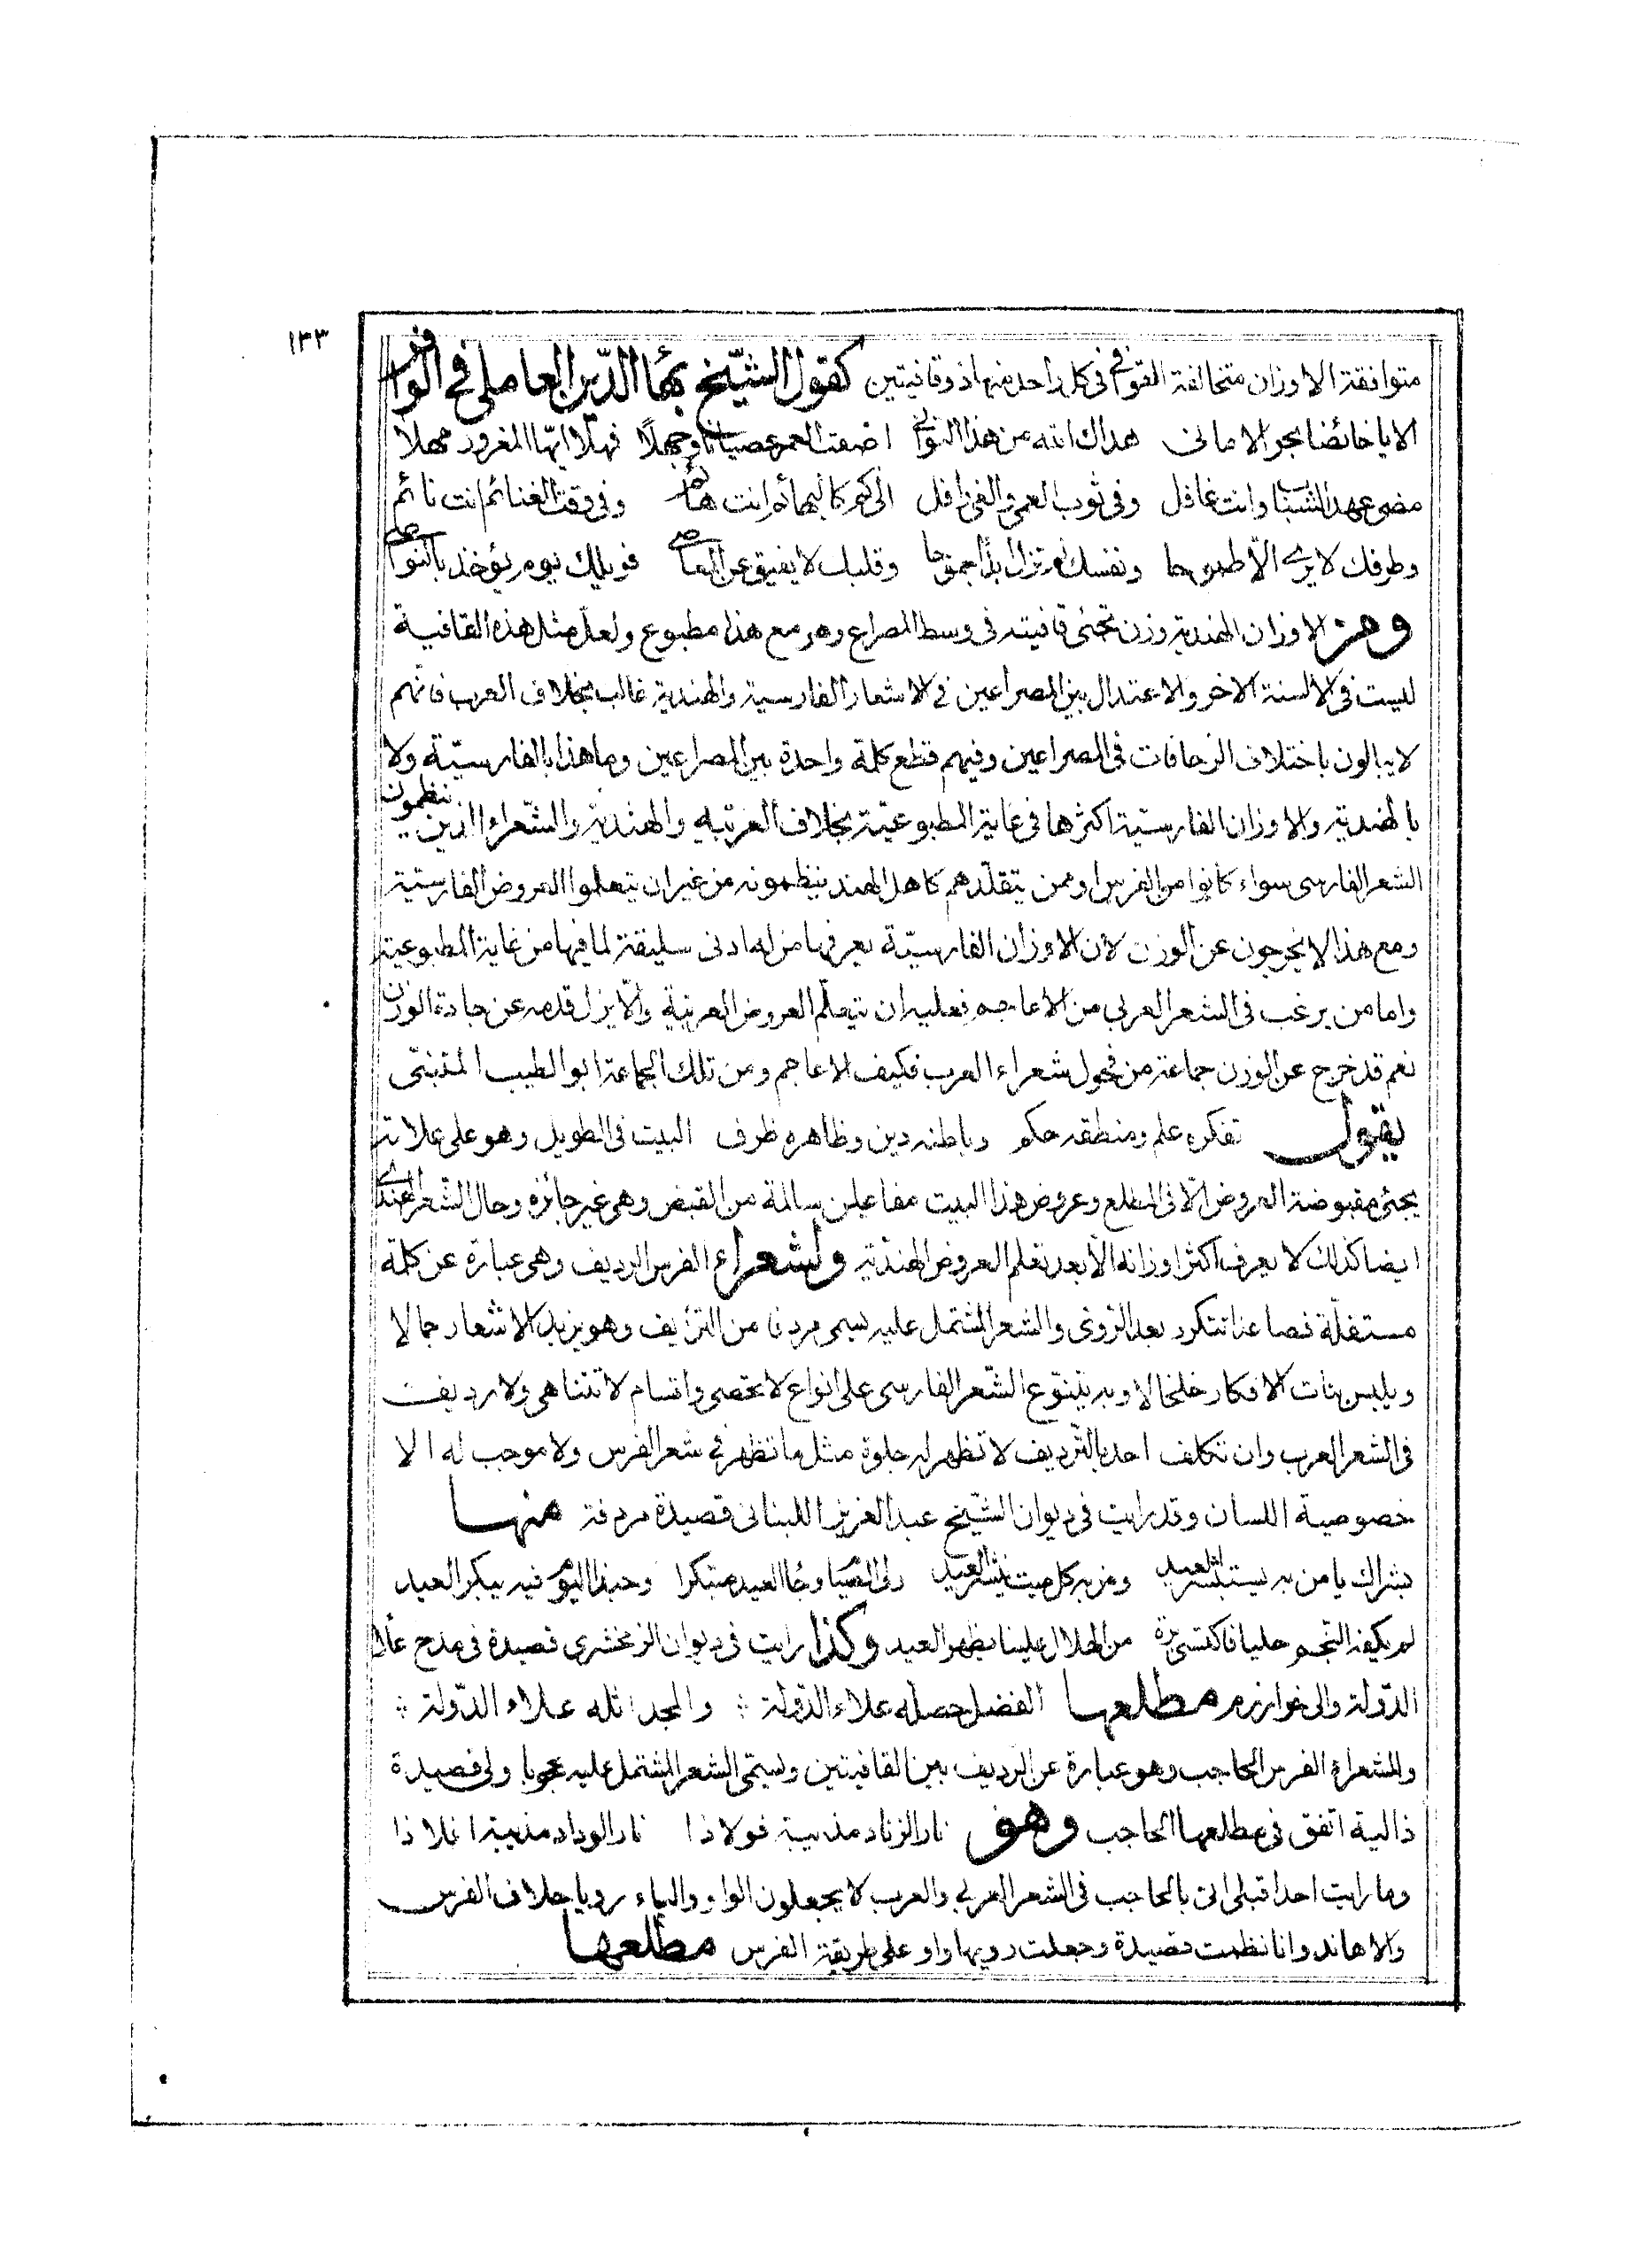 ١٣٣
متوافقة الاوزان متخالفة القوافي في كل واحد منها ذو قافيتين كقول الشيخ بهاء الدين العاملي في الوافر
الا يا خائضا بحر الاماني هداك الله من هذا التواني اضعت العمر عصيانا وجهلا فمهلا ايها المغرور مهلا
مضى عهد الشباب وانت غافل وفي ثوب العمى والغي رافل الى كم كالبهائم انت هائم وفي وقت الغنائم انت نائم
وطرفك لا يرى الا طموحا ونفسك لم تزل ابدا جموحا وقلبك لا يفيق عن المعاصي فويلك يوم يؤخذ بالنواصي
ومن الاوزان الهندية وزن تجئ قافيته في وسط المصراع وهو مع هذا مطبوع ولعل مثل هذه القافية
ليست في الالسنة الاخر والاعتدال بين المصراعين في الاشعار الفارسية والهندية غالب بخلاف العرب فانهم
لا يبالون باختلاف الزحافات في المصراعين وفيهم قطع كلمة واحدة بين المصراعين وما هذا بالفارسية ولا
بالهندية والاوزان الفارسية اكثرها في غاية المطبوعية بخلاف العربية والهندية والشعراء الذين ينظمون
الشعر الفارسي سواء كانوا من الفرس او ممن يتقلدهم كاهل الهند ينظمونه من غير ان يتعلموا العروض الفارسية
ومع هذا لا يخرجون عن الوزن لان الاوزان الفارسية يعرفها من له ادنى سليقة لما فيها من غاية المطبوعية
واما من يرغب في الشعر العربي من الاعاجم فعليه ان يتعلم العروض العربية والا يزل قدمه عن جادة الوزن
نعم قد خرج عن الوزن جماعة من فحول شعراء العرب فكيف الاعاجم ومن تلك الجماعة ابو الطيب المتنبي
يقول تفكره علم ومنطقه حكم وباطنه دين وظاهره ظرف البيت في الطويل وهو على علاته
يجئ مقبوضة العروض الا في المطلع وعروض هذا البيت مفاعيلن سالمة من القبض وهي غير جائزة وحال الشعر الهندي
ايضا كذلك لا يعرف اكثر اوزانه الا بعد تعلم العروض الهندية ولشعراء الفرس الرديف وهي عبارة عن كلمة
مستقلة فصاعدا تتكرر بعد الروي والشعر المشتمل عليه يسمى مردفا من الترديف وهو يزيد الاشعار جمالا
ويلبس بنات الافكار خلخالا وبه يتنوع الشعر الفارسي على انواع لا تحصى واقسام لا تتناهى ولا رديف
في الشعر العرب وان تكلف احد بالترديف لا تظهر له جلوة مثل ما تظهر في شعر الفرس ولا موجب له الا
خصوصية اللسان وقد رايت في ديوان الشيخ عبد العزيز اللبناني قصيدة مردفة منها
بشراك يا من به يستبشر العيد ومن به كل ميت ينشر العيد ولى الصيام وجاء العيد مبتكرا وحبذا اليوم فيه يبكر العيد
لم يكفه النجم حليا فاكتسى من الهلال علينا يظهر العيد وكذا رايت في ديوان الزمخشري قصيدة في مدح علاء
الدولة والي خوارزم مطلعها الفضل حصله علاء الدولة ⁘ والمجد اثله علاء الدولة ⁘
ولشعراء الفرس الحاجب وهو عبارة عن الرديف بين القافيتين ويسمى الشعر المشتمل عليه محجوبا ولي قصيدة
ذالية اتفق في مطلعها الحاجب وهو نار الزناد مذيبة فولاذا نار الوداد مذيبة افلاذا
وما رايت احدا قبلي اتى بالحاجب في الشعر العربي والعرب لا يجعلون الواو والياء رويا بخلاف الفرس
والاهاند وانا نظمت قصيدة وجعلت رويها واو على طريقة الفرس مطلعها